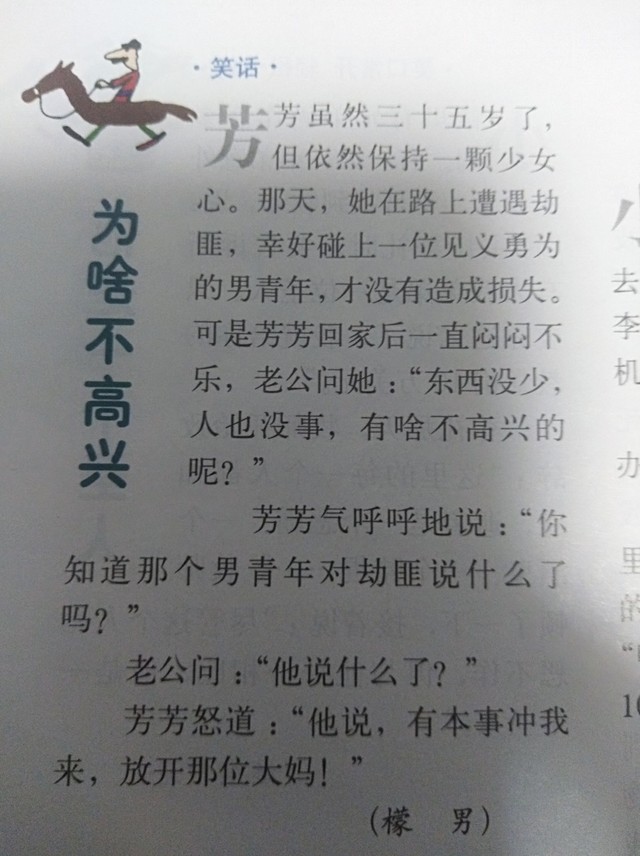 ·笑话·
为啥不高兴
芳芳虽然三十五岁了,
但依然保持一颗少女
心。那天,她在路上遭遇劫
匪,幸好碰上一位见义勇为
的男青年,才没有造成损失。
可是芳芳回家后一直闷闷不
乐,老公问她:“东西没少,
人也没事,有啥不高兴的
呢?”
芳芳气呼呼地说:“你
知道那个男青年对劫匪说什么了
吗?”
老公问:“他说什么了?”
芳芳怒道:“他说,有本事冲我
来,放开那位大妈!”
(檬 男)
去
李
机
办
里
的